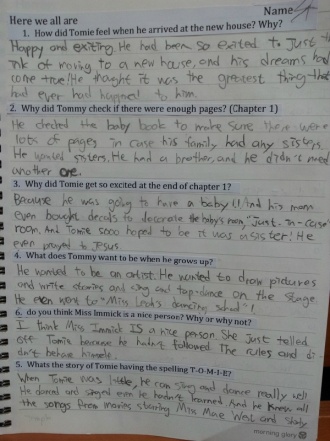 Here we all are
Name
1. How did Tomie feel when he arrived at the new house? Why?
Happy and exiting He had been so exited to Just th
ink of moving to a new house, and his dreams had
come true! He thought it was the greatest thing that
had ever had happned to him.
2. Why did Tommy check if there were enough pages? (Chapter 1)
He checked the baby book to make sure there were
lots of pages in case his family had any sisters.
He wanted sisters. He had a brother, and he didn't need
another one.
3. Why did Tomie get so excited at the end of chapter 1?
Because he was going to have a baby! And his mom
even bought decals to decorate the baby's room, "Just- In-case"
room. And Tomie sooo hoped to be it was a sister! He
even prayed to Jesus.
4. What does Tommy want to be when he grows up?
He wanted to be an artist. He wanted to draw pictures
and write stories and sing and tap-dance on the stage.
He even went to "Miss Leah's dancing school"!
6. do you think Miss Immick is a nice person? Why or why not?
I think Miss Immick IS a nice person. She just telled
off Tomie because he hadn't followed. The rules and di
dn't behave himself.
5. Whats the story of Tomie having the spelling T-O-M-I-E?
When Tomie was little, he can sing and dance really well
He danced and singed even he hadn't learned. And he knews all
the songs from movies starring Miss Mae West and Shirly
morning glory